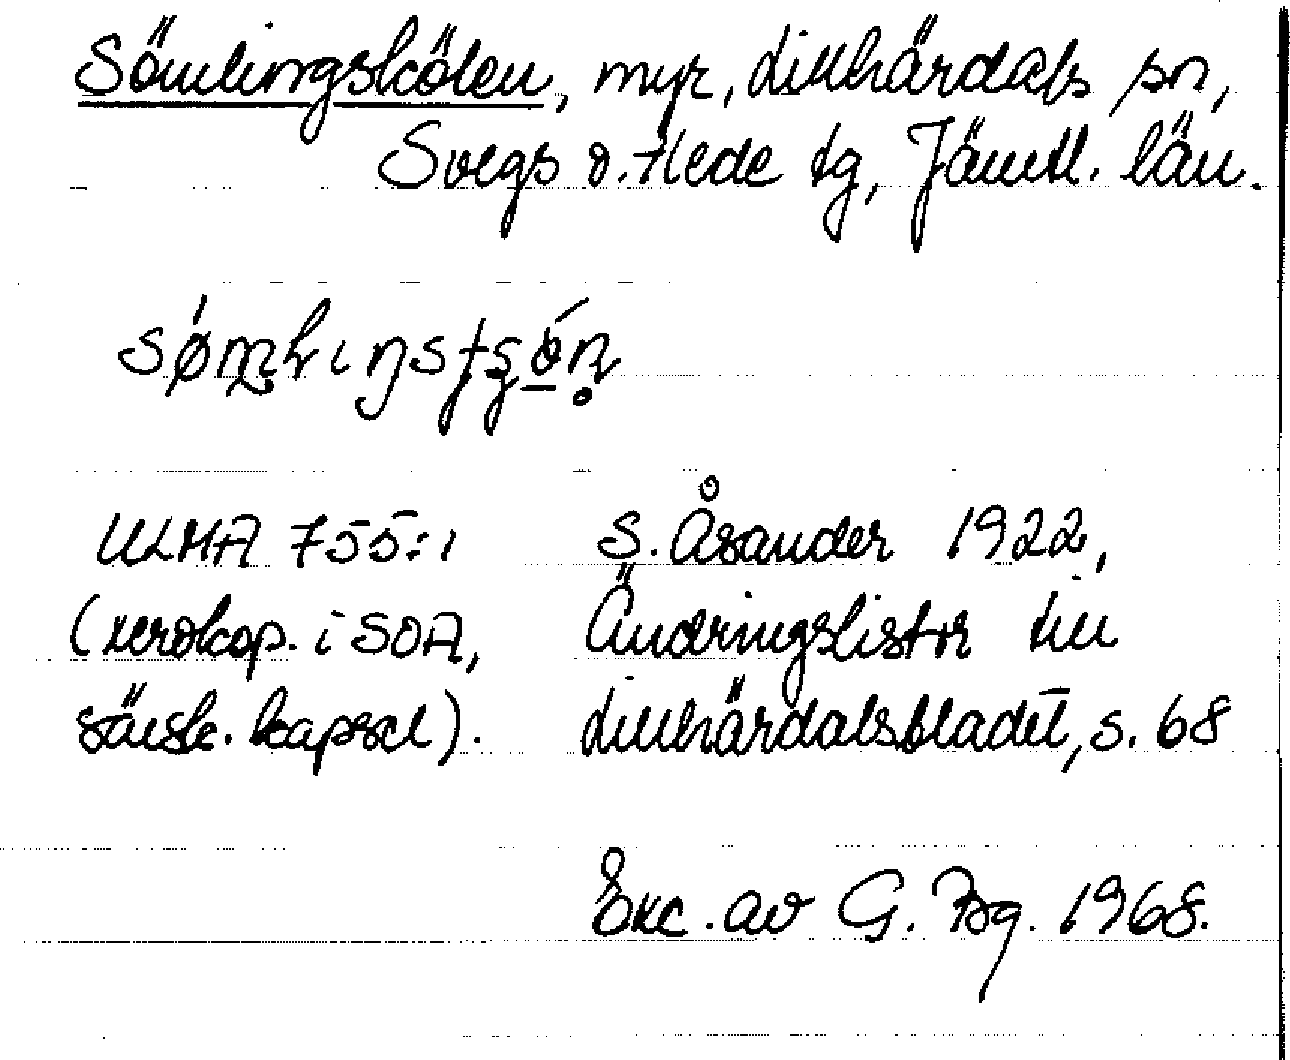 Sömlingskölen, myr, Lillhärdals sn,
Svegs o. Hede tg, Jämtl. län.
ULMA 755:1 S. Åsander 1922,
(xerokop. i SOA, Ändringslistor till
särsk. kapsel). Lillhärdalsbladet, s. 68
Exc. av G. Fbg. 1968.